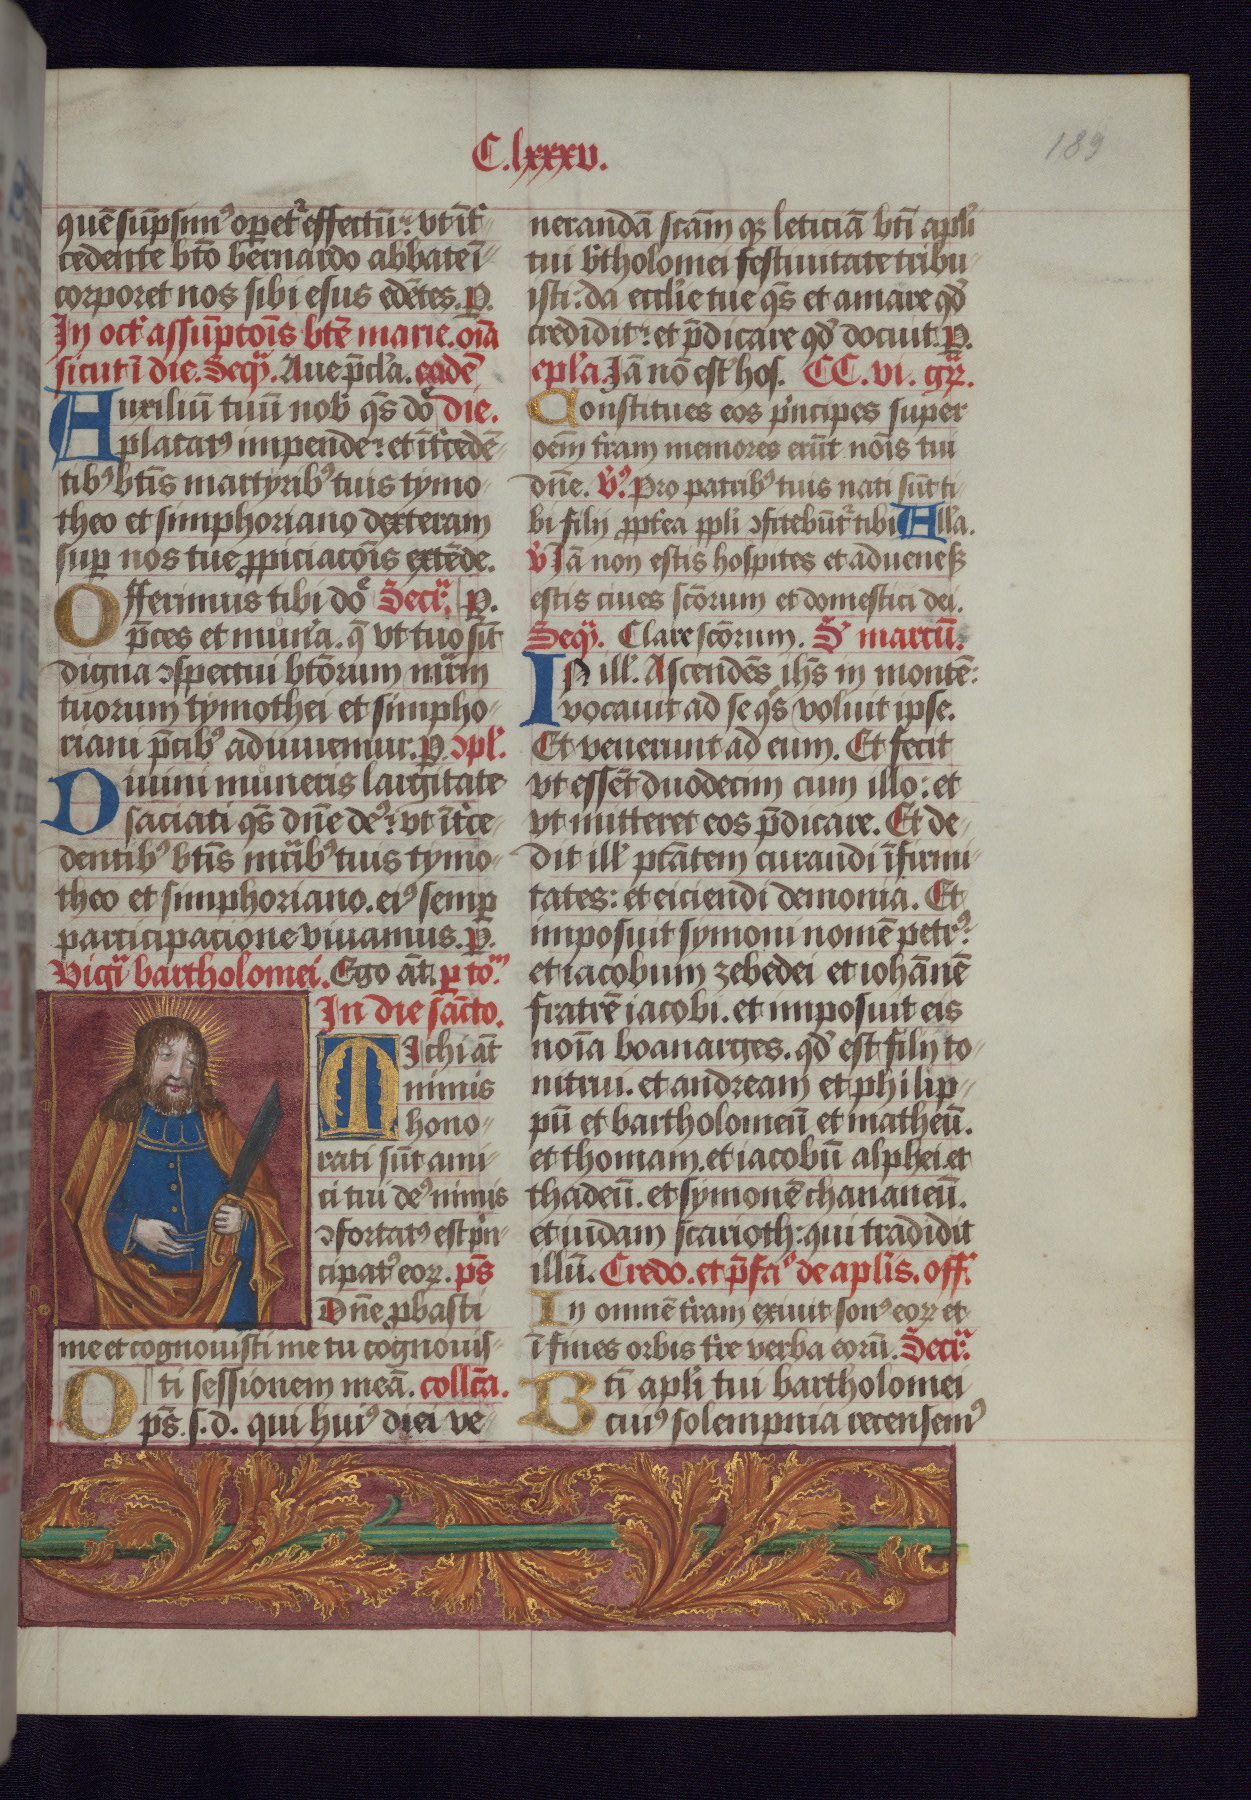 C.lxxxv.
189
quē sūpsim⁹ oꝑet᷑ effectū: vt īt̄
cedente bt̄o bernardo abbate ī
corporet nos sibi esus edētes. P.
In oct̄ assūptōis btē marie. oīa
sicut ī die. Seqͥ. Aue p̄cla. eadē
Auxiliū tuū nob̄ q̄s do᷑ die.
placat⁹ impende: et īt̄cedē
tib⁹ bt̄is martyrib⁹ tuis tymo
theo et simphoriano dexteram
suꝑ nos tue ꝓpiciacōis extēde.
Offerimus tibi do᷑ Secr̄. P.
p̄ces et mun̄a. q̄ vt tuo sūt
digna ↄspectui bt̄orum mr̄m
tuorum tymothei et simpho
riani p̄cib⁹ adiuuemur. P. ↄpl̄.
Diuini muneris largitate
saciati q̄s dn̄e de⁹: vt īt̄ce
dentib⁹ bt̄is mr̄ib⁹ tuis tymo
theo et simphoriano. ei⁹ semꝑ
participacione viuamus. P.
Vigī bartholomei. Ego āt. ꝑ to᷑
In die sācto.
Michi āt
nimis
hono
rati sūt ami
ci tui de⁹ nimis
ↄfortat⁹ est p̄n
cipat⁹ eoꝝ. p̄s
Dn̄e ꝓbasti
me et cognouisti me tu cognouis
ti sessionem meā. collc̄a.
O p̄s. s. d. qui hui⁹ diei ve
nerandā scām qꝫ leticiā bt̄i apl̄i
tui b̄tholomei festiuitate tribu
isti: da eccl̄ie tue q̄s et amare qd̄
credidit: et p̄dicare qd̄ docuit. P.
epl̄a. Iā nō est hos. CC. vi. gr̄.
Constitues eos p̄ncipes super
oēm t̄ram memores erūt nōis tui
dn̄e. V̄. Pro patrib⁹ tuis nati sūt ti
bi filij ꝓpt̄ea ppl̄i ↄfitebūt᷑ tibi All̄a.
V̄ Iā non estis hospites et adueneß
estis ciues scōrum et domestici dei.
Seqͥ. Clare scōrum. S̄ marcū.
In ill̄. Ascendēs ih̄s in montē:
vocauit ad se q̄s voluit ipse.
Et venerunt ad eum. Et fecit
vt essēt duodecim cum illo: et
vt mitteret eos p̄dicare. Et de
dit ill̄ ptātem curandi īfirmi
tates: et eiciendi demonia. Et
imposuit symoni nomē petr⁹:
et iacobum zebedei et iohānē
fratrē iacobi. et imposuit eis
noīa boanarges. qd̄ est filij to
nitrui. et andream et philip
pū et bartholomeū et matheū.
et thomam. et iacobū alphei. et
thadeū. et symonē chananeū.
et iudam scarioth: qui tradidit
illū. Credo. et p̄fc̄io de apl̄is. off.
In omnē t̄ram exiuit son⁹ eoꝝ et
ī fines orbis t̄re verba eorū. Secr̄.
Bt̄i apl̄i tui bartholomei
cui⁹ solempnia recensem⁹